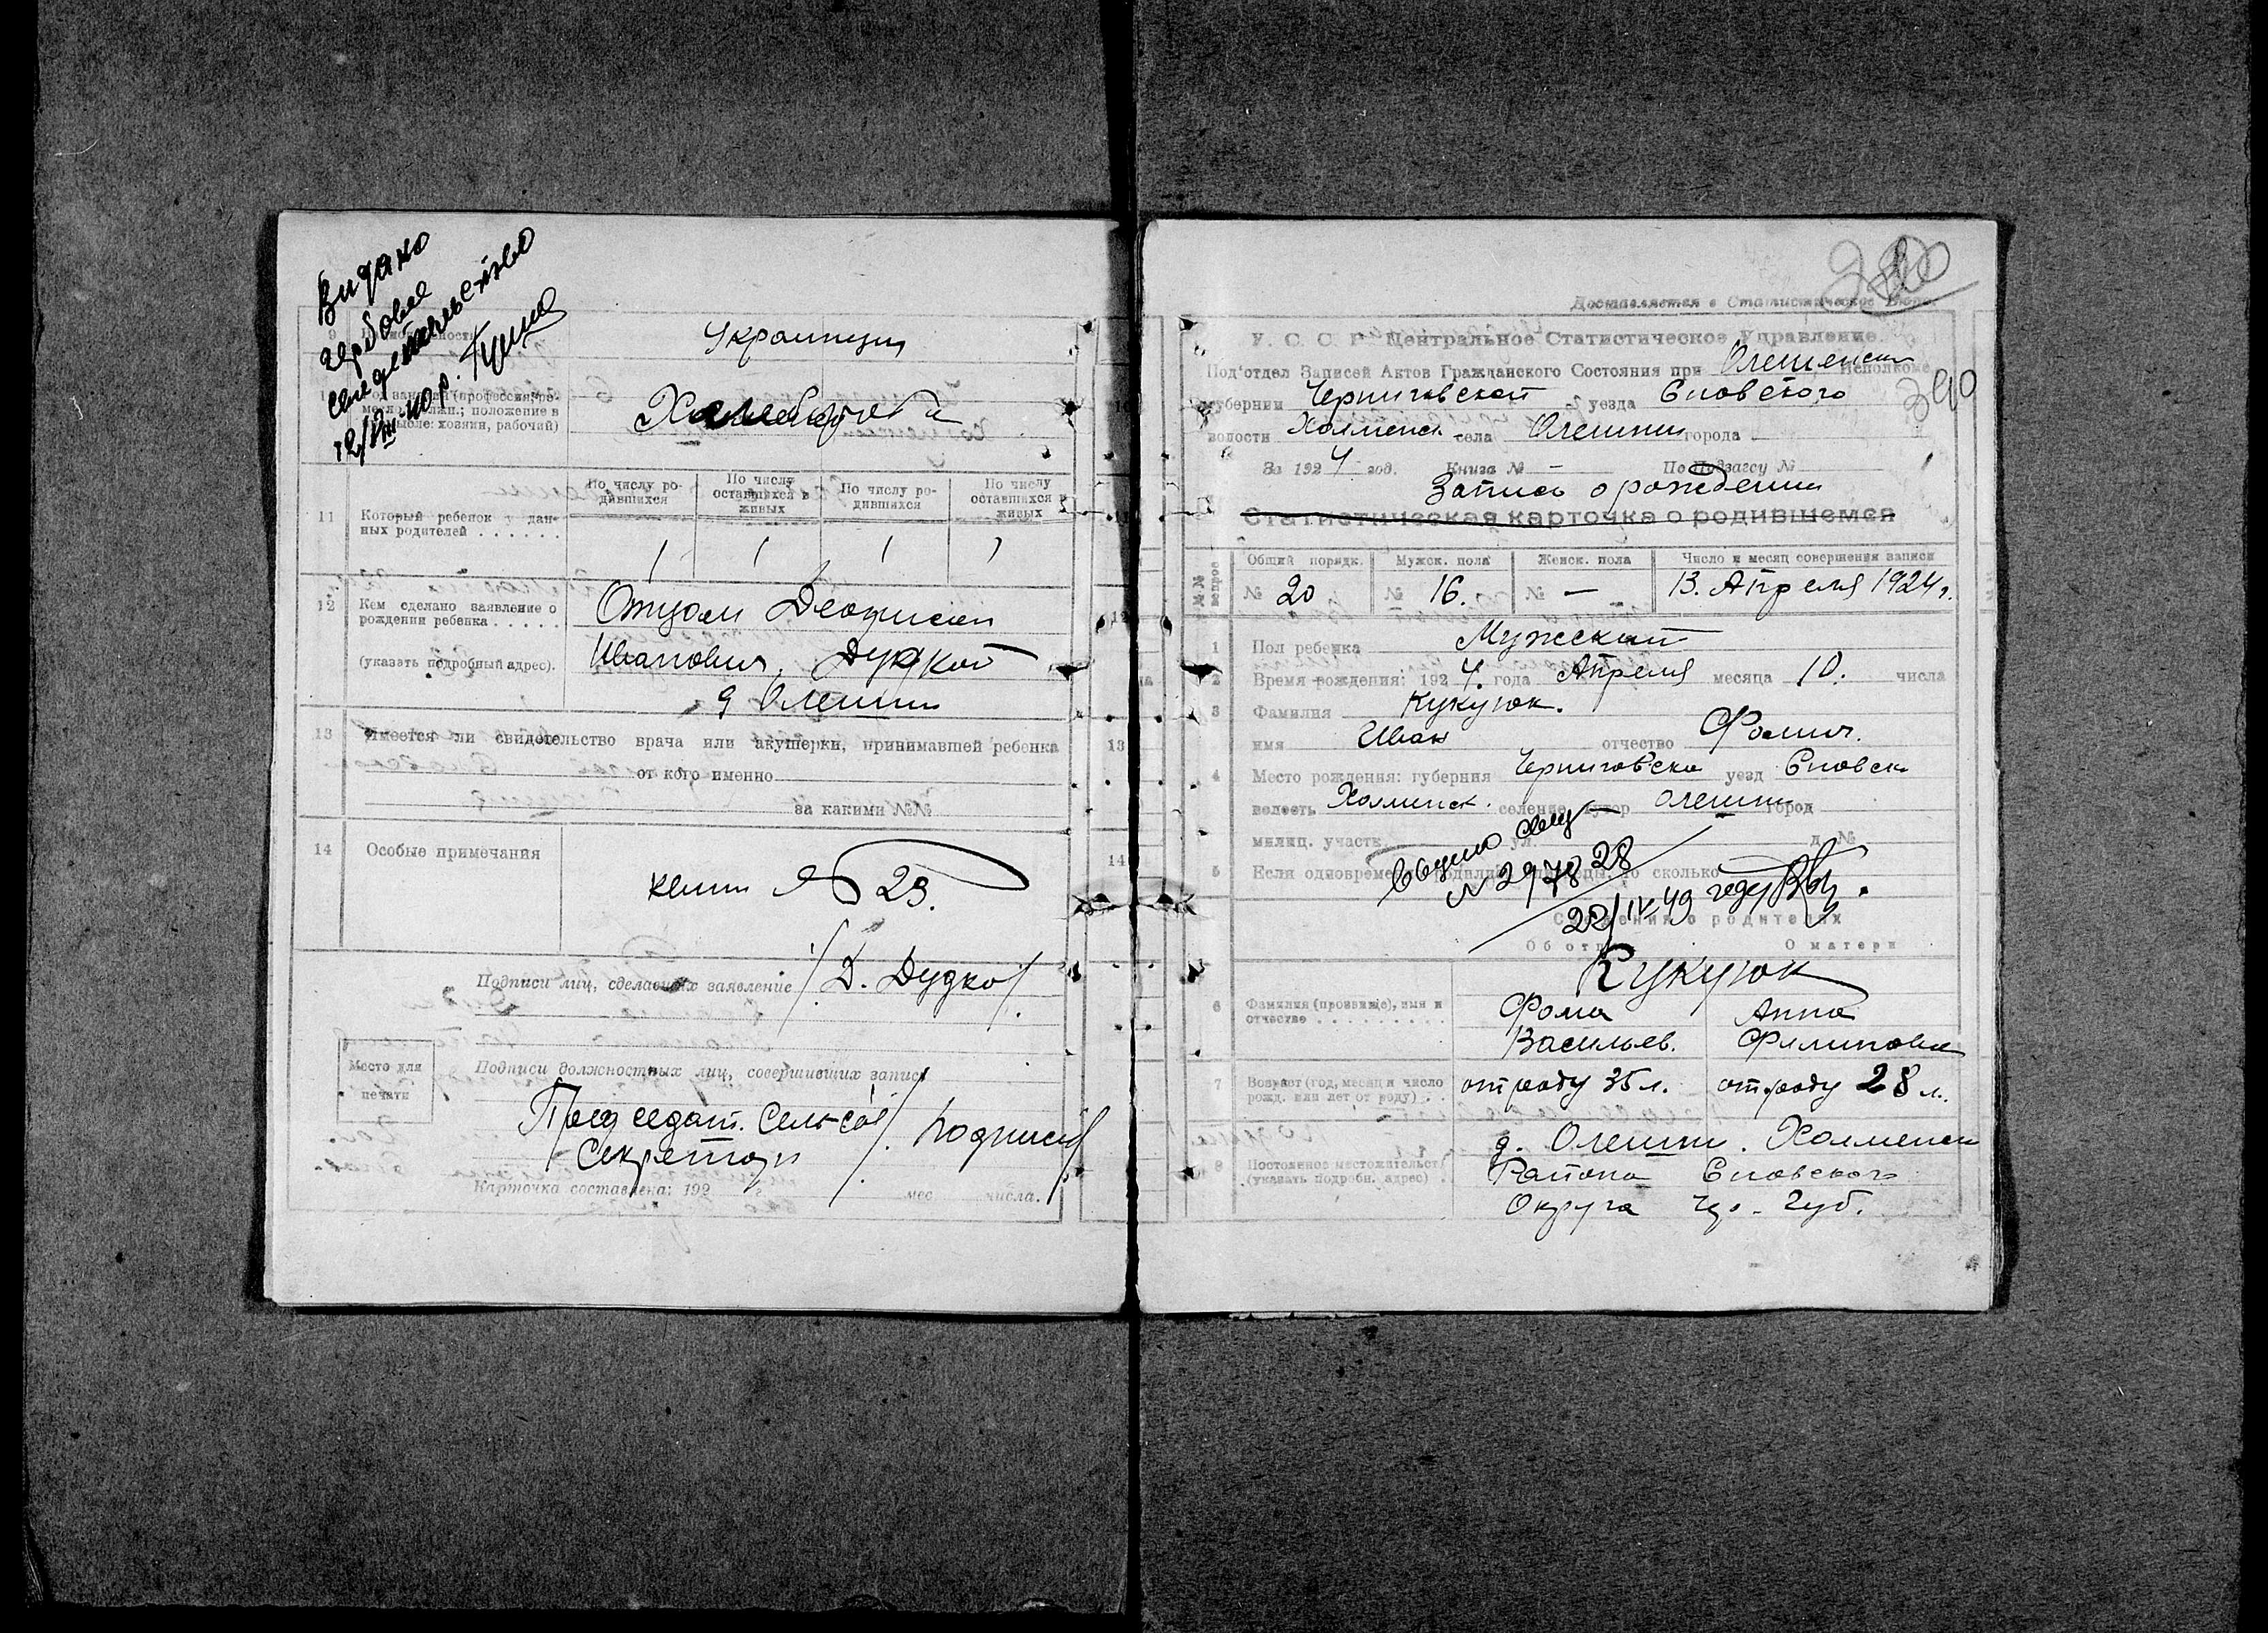 Видано
гербовое
свидетельство
12/VIII-40 р.
9
Украинцы
мысле: хозяин, рабочий)
Хлебороб
По числу ро-
дившихся
По числу
оставшихся в
живых
По числу ро-
дившихся
По числу
оставшихся в
живых
11 Который ребенок у дан-
ных родителей . . . . . .
1 1 1 1
12 Кем сделано заявление о
рождении ребенка . . . . .
(указать подробный адрес).
Отцом
Иванович. Дудкой
д Олешни
13 Имеется ли свидетельство врача или акушерки, принимавшей ребенка
от кого именно
за какими №№
14 Особые примечания
№ 23.
Подписи лиц, сделавших заявление /Д. Дудко/.
Место для
печати
Подписи должностных лиц, совершивших запись
Председат. Сельсов
Секретарь /. подписи/
Карточка составлена: 192 г. мес числа.
Доставляется в Статистическое Бюро.
У. С. С. Р. Центральное Статистическое Управление.
Под'отдел Записей Актов Гражданского Состояния при Олешенском Исполкоме
губернии Черниговской уезда Сновского
390
волости Холменск села Олешни города
За 1924 год. Книга № По Подзагсу №
Запись о рождении
Статистическая карточка о родившемся
№№ вопрос
Общий порядк. Мужск. пола Женск. пола Число и месяц совершения записи
№ 20 № 16. № — 13. Апреля 1924 г.
1 Пол ребенка Мужский
2 Время рождения: 1924. года Апреля месяца 10. числа
3 Фамилия Кукуюк.
имя Иван отчество Фомич.
4 Место рождения: губерния Черниговско уезд Сновск
волость Холминск. селение, хутор Олешни город
милиц. участк. ул. д. №
5 Если одновременно сколько
видано свид
№ 297828
22/IV-49 году
Сведения о родителях
Об отце О матери
Кукуюк
6 Фамилия (прозвище), имя и
отчество . . . . . . . . .
Фома Анна
Васильев. Филиповна
7 Возраст (год, месяц и число
рожд. или лет от роду) . .
от роду 35 л. от роду 28 л.
8 Постоянное местожительст.
(указать подробн. адрес) .
д. Олешни. Холменск
Района Сновского
Округа Чер. Губ.